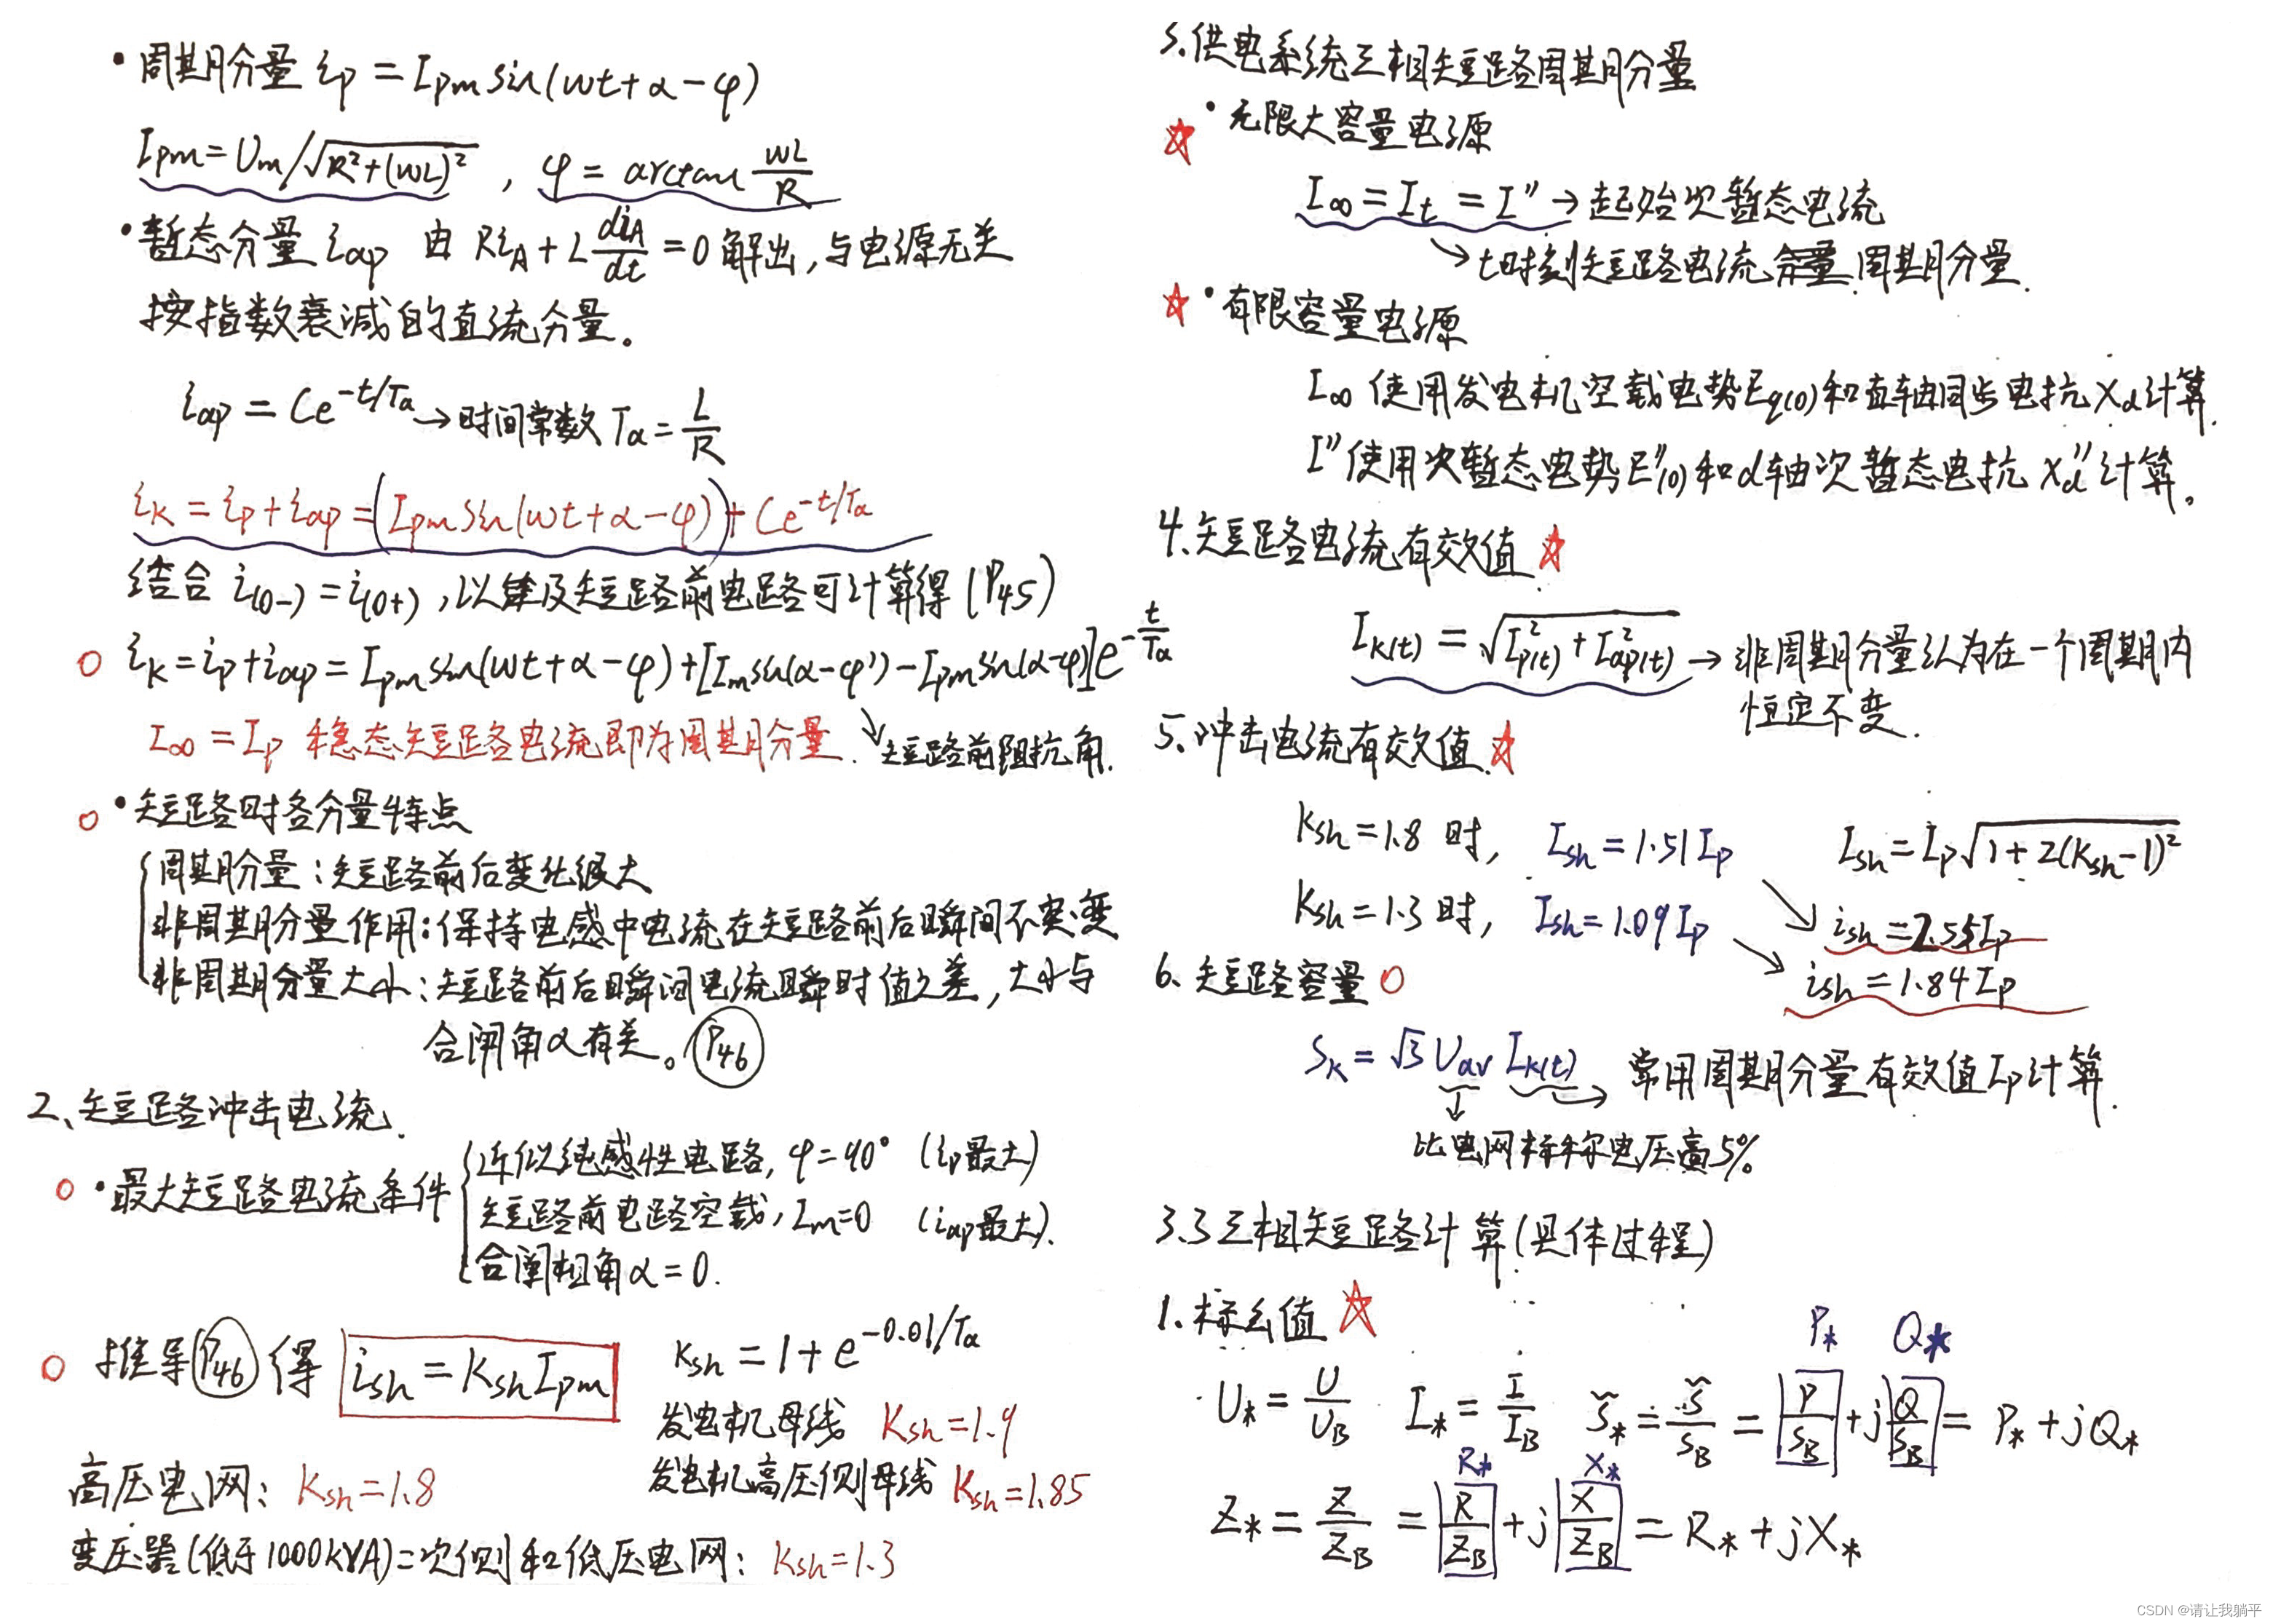 • 周期分量 ip = Ipm sin(wt+α-φ)
Ipm = Um/√(R²+(wL)²) , φ = arctan wL/R
• 暂态分量 iαp 由 RiA + L diA/dt = 0 解出,与电源无关
按指数衰减的直流分量。
iαp = Ce^(-t/Tα) → 时间常数 Tα = L/R
iK = ip + iαp = (Ipm sin(wt+α-φ)) + Ce^(-t/Tα)
结合 i(0-) = i(0+) , 以及短路前电路可计算得 (P45)
○ iK = ip + iαp = Ipm sin(wt+α-φ) + [Im sin(α-φ') - Ipm sin(α-φ)]e^(-t/Tα)
I∞ = Ip 稳态短路电流即为周期分量. ↘ 短路前阻抗角.
○ • 短路时各分量特点
周期分量:短路前后变化很大
非周期分量作用:保持电感中电流在短路前后瞬间不突变
非周期分量大小:短路前后瞬间电流瞬时值之差,大小与
合闸角α有关。(P46)
2、短路冲击电流.
○ • 最大短路电流条件
近似纯感性电路, φ=90° (ip最大)
短路前电路空载, Im=0 (iαp最大).
合闸相角α=0.
○ 推导(P46)得 ish = Ksh Ipm
Ksh = 1 + e^(-0.01/Tα)
发电机母线 Ksh=1.9
发电机高压侧母线 Ksh=1.85
高压电网: Ksh=1.8
变压器(低于1000kVA)二次侧和低压电网: Ksh=1.3
3.供电系统三相短路周期分量
☆ • 无限大容量电源
I∞ = It = I'' → 起始次暂态电流
↘ t时刻短路电流 周期分量.
☆ • 有限容量电源
I∞ 使用发电机空载电势Eq(0)和直轴同步电抗Xd计算.
I''使用次暂态电势E''(0)和d轴次暂态电抗 Xd''计算。
4.短路电流有效值 ☆
IK(t) = √(I²p(t) + I²αp(t)) → 非周期分量认为在一个周期内
恒定不变.
5.冲击电流有效值 ☆
Ksh=1.8 时, Ish=1.51Ip Ish = Ip√(1+2(Ksh-1)²)
Ksh=1.3 时, Ish=1.09Ip ↘ ish=2.55Ip
↘ ish=1.84Ip
6.短路容量 ○
SK = √3 Uav IK(t) → 常用周期分量有效值Ip计算.
↓
比电网标称电压高5%
3.3 三相短路计算(具体过程)
1.标幺值 ☆
P* Q*
U* = U/UB I* = I/IB S̃* = S̃/SB = P/SB + jQ/SB = P* + jQ*
R* X*
Z* = Z/ZB = R/ZB + jX/ZB = R* + jX*
CSDN @请让我躺平